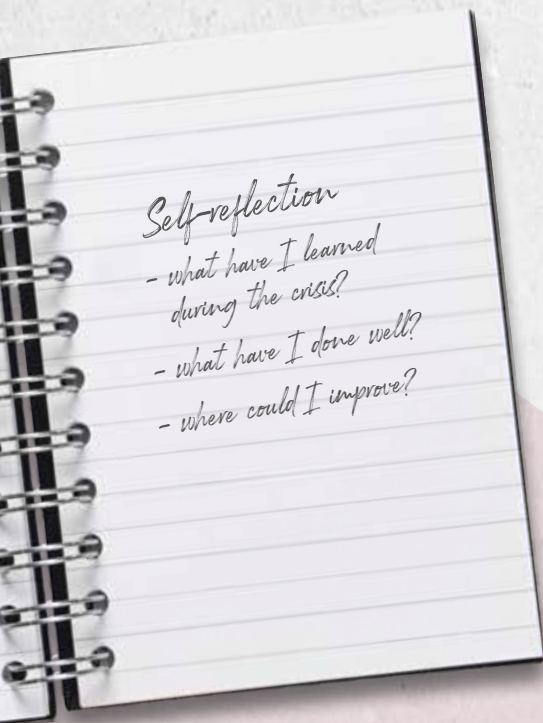 Self-reflection
- what have I learned
during the crisis?
- what have I done well?
- where could I improve?